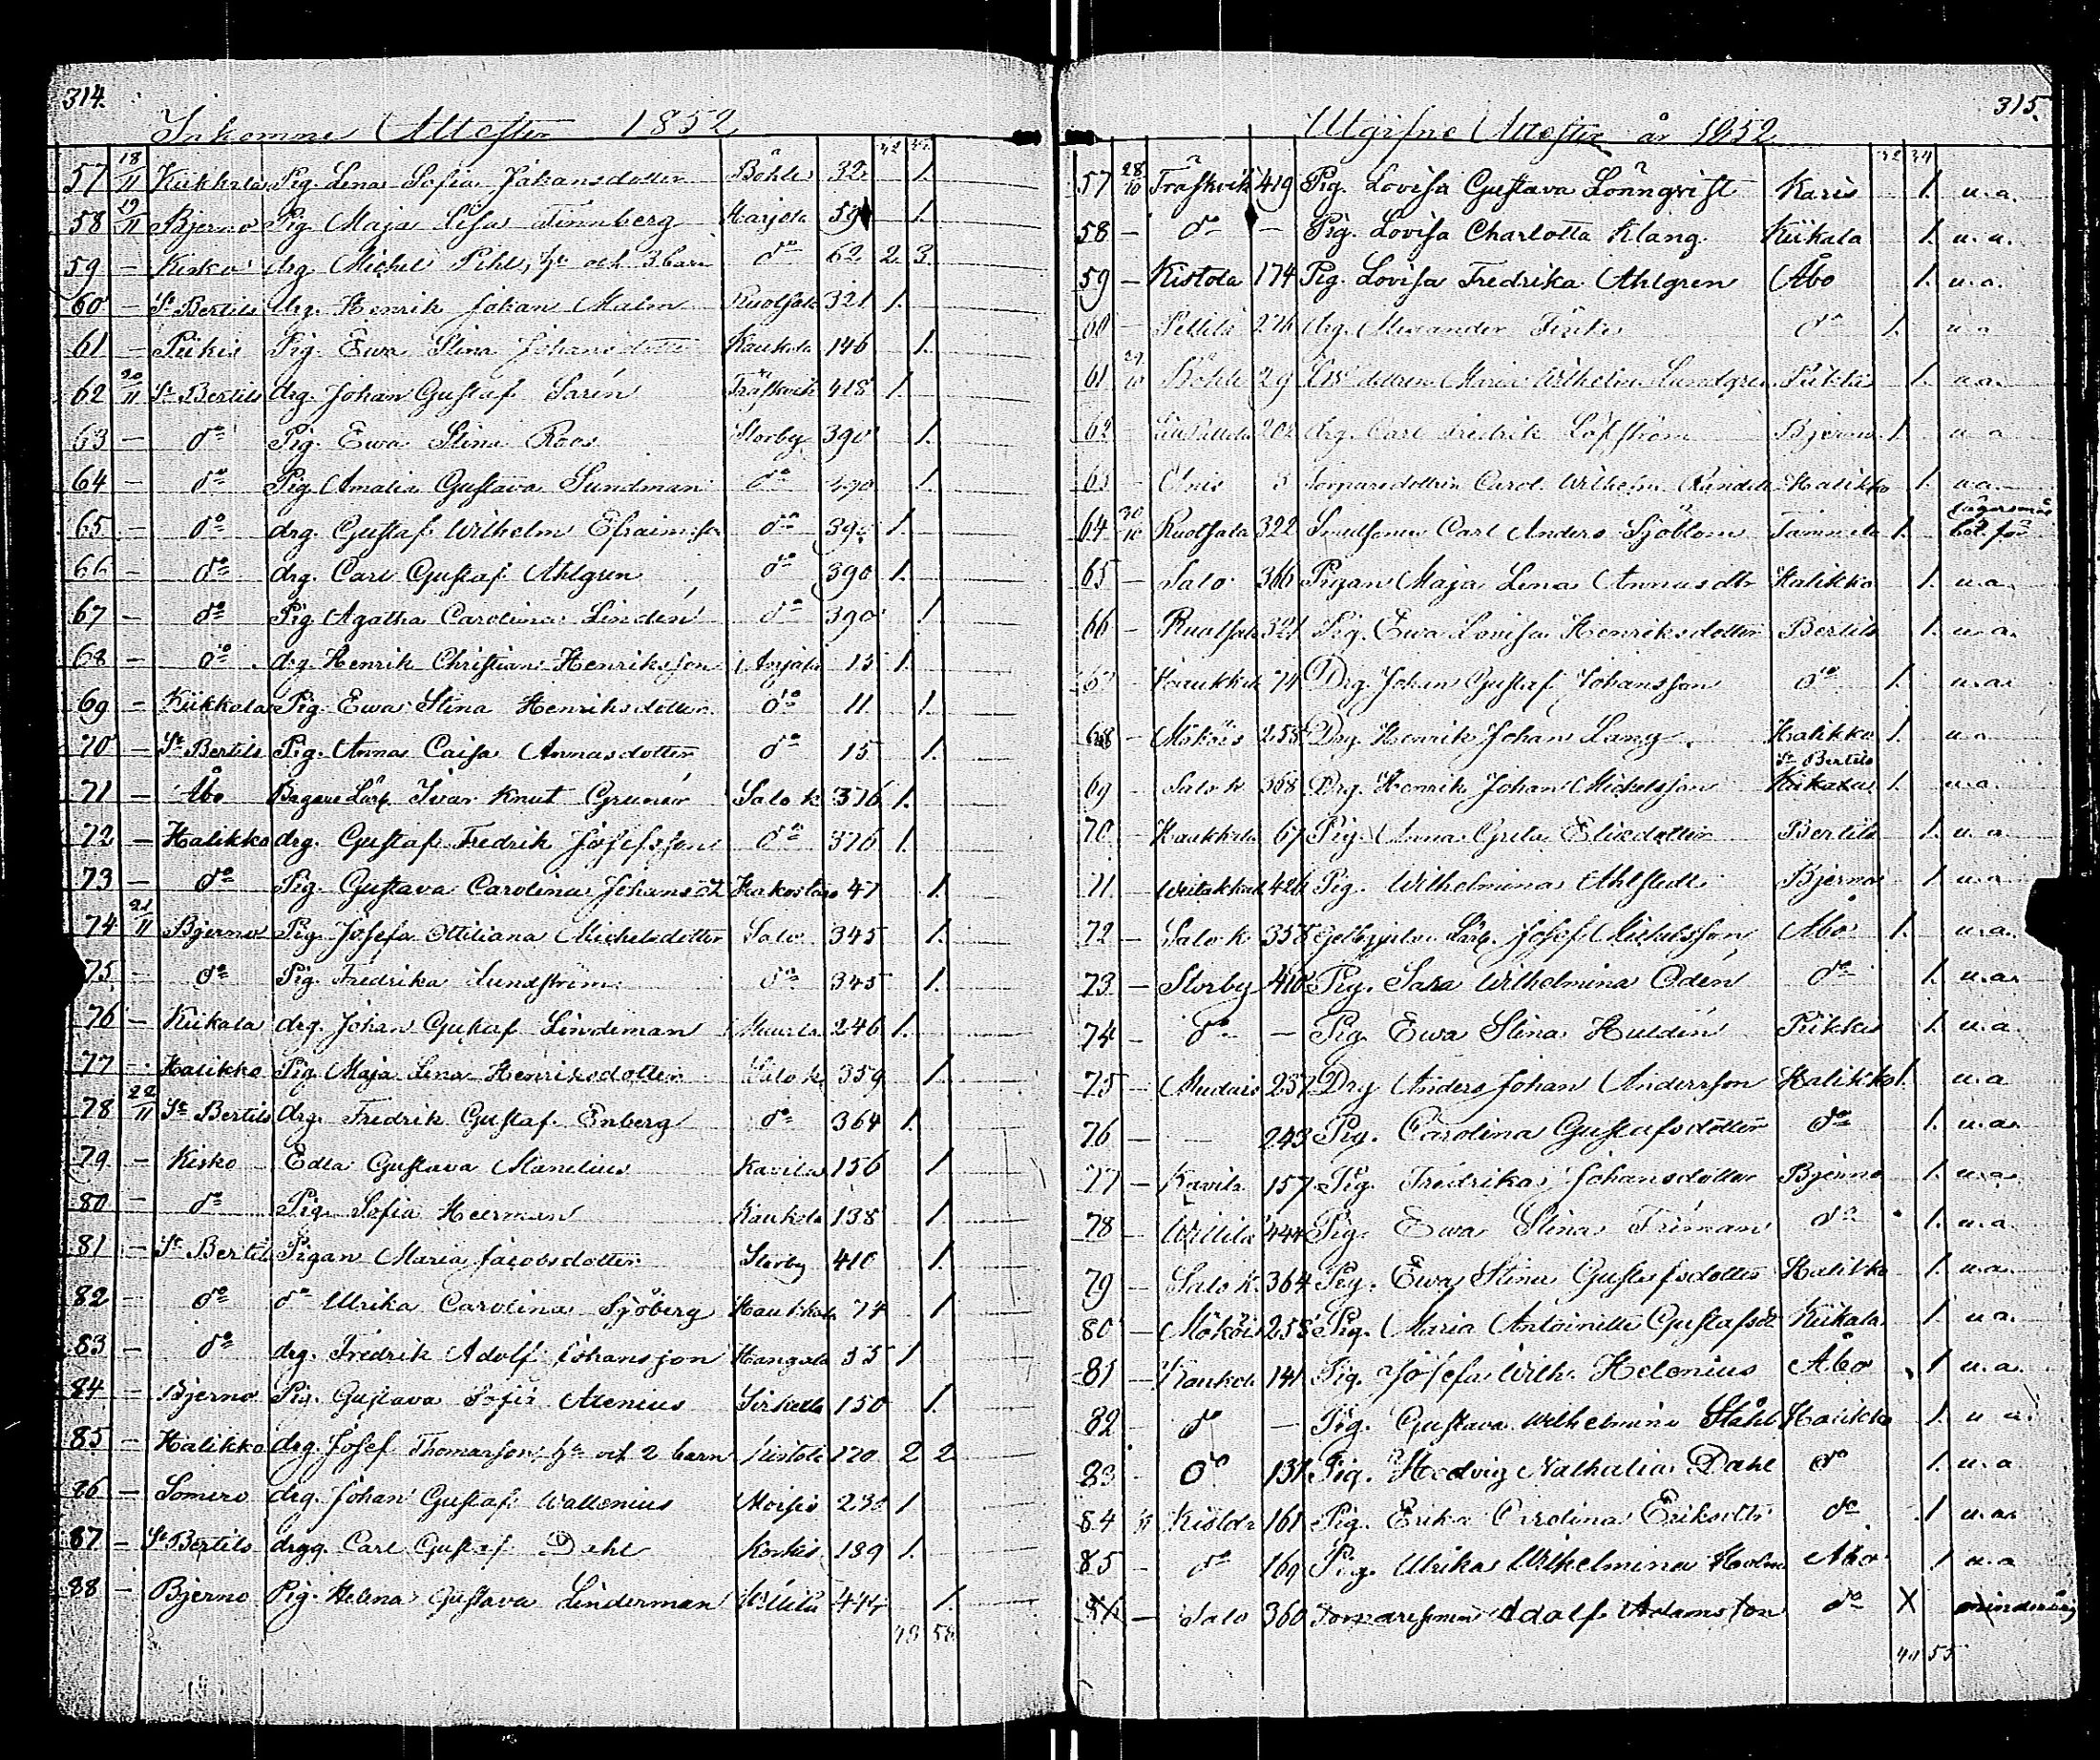 314.
Inkomne Attester 1852
32 34
57 18/11 Kiikkala Pig. Lena Sofia Johansdotter Böhle 32 1.
58 19/11 Bjerno Pig. Maja Lisa Finnberg Harjola 59 1.
59 — Kisko drg. Michel Pihl, h. och 3 barn do 62 2. 3.
60 — St Bertils drg. Henrik Johan Malm Ruotsala 321 1.
61 — Piikis Pig. Ewa Stina Johansdotter Kaukola 146 1.
62 20/11 St Bertils drg. Johan Gustaf Sarén Träskvik 418 1.
63 — do Pig. Ewa Stina Roos Storby 390 1.
64 — do Pig. Amalia Gustava Sundman do 390 1.
65 — do drg. Gustaf Wilhelm Efraimsson do 390 1.
66 — do drg. Carl Gustaf Ahlgren do 390 1.
67 — do Pig. Agatha Carolina Lindén do 390 1.
68 — do drg. Henrik Christian Henriksson Anjala 15 1.
69 — Kiikkala Pig. Ewa Stina Henriksdotter do 11 1.
70 — St Bertils Pig. Anna Caisa Annasdotter do 15 1.
71 — Åbo Bagare Lärl. Ivar Knut Grunér Salo k 376 1.
72 — Halikko drg. Gustaf Fredrik Josefsson do 376 1.
73 — do Pig. Gustava Carolina Johansdt Kakostano 47 1.
74 21/11 Bjerno Pig. Josefa Ottiliana Michelsdotter Salo 345 1.
75 — do Pig. Fredrika Lundström do 345 1.
76 — Kiikala drg. Johan Gustaf Lindeman Muurla 246 1.
77 — Halikko Pig. Maja Lena Henriksdotter Salo k. 359 1.
78 22/11 St Bertils drg. Fredrik Gustaf Enberg do 364 1.
79 — Kisko Edla Gustava Manelius Kavila 156 1.
80 — do Pig. Sofia Heerman Kaukola 138 1.
81 — St Bertils Pigan Maria Jacobsdotter Storby 410 1.
82 — do do Ulrika Carolina Sjöberg Haukkala 74 1.
83 — do drg. Fredrik Adolf Johansson Hangola 55 1
84 — Bjerno Pig. Gustava Sofia Alenius Sirkella 150 1.
85 — Halikko drg. Josef Thomasson, h. och 2 barn Kistola 170 2 2.
86 — Somero drg. Johan Gustaf Wallenius Moisio 230 1
87 — St Bertils drgg. Carl Gustaf Dahl Korkis 189 1.
88 — Bjerno Pig. Helena Gustava Linderman Willilä 444 1.
43 58
315.
Utgifne Attester år 1852
32 34
57 28/10 Träskvik 419 Pig. Lovisa Gustava Lönnqvist Karis 1. u.a.
58 — do — Pig. Lovisa Charlotta Klang Kiikala 1. u.a.
59 — Kistola 174 Pig. Lovisa Fredrika Ahlgren Åbo 1. u.a.
60 — Pettilä 276 drg. Alexander do 1. u.a
61 29/10 Böhle 29 Maria Wilhelm. Lundgren Piikkis 1. u.a.
62 — 202 drg. Carl Fredrik Löfström Bjerno 1. u.a
63 — 3 Torparedottren Carol. Wilhelm. Halikko 1. u.a.
64 30/10 Ruotsala 322 Smedsonen Carl Anders Sjöblom Tammela 1.
65 — Salo 366 Pigan Maja Lena Annasdtr Halikko 1. u.a.
66 — Ruotsala 321 Pig. Ewa Lovisa Henriksdotter Bertils 1. u.a.
67 — Haukkala 74 Drg. Johan Gustaf Johansson do 1. u.a.
68 — Mökois 258 Drg. Henrik Johan Lang Halikko 1. u.a
St Bertils
69 — Salo k 368 Drg. Henrik Johan Michelsson Kiikala 1. u.a.
70 — Haukkala 67 Pig. Anna Greta Eliædotter Bertils 1. u.a
71 — 426 Pig. Wilhelmina Ahlstedt Bjerno 1. u.a
72 — Salo k 358 Lärl. Josef Michelsson Åbo 1. u.a.
73 — Storby 410 Pig. Sara Wilhelmina Odén do 1. u.a.
74 — do — Pig. Ewa Stina Huldin Piikkis 1. u.a
75 — 237 Drg Anders Johan Andersson Halikko 1. u.a
76 — — 243 Pig. Carolina Gustafsdotter do 1. u.a.
77 — Kavila 157 Pig. Fredrika Johansdotter Bjerno 1. u.a.
78 — Willilä 444 Pig. Ewa Stina Friman do 1. u.a
79 — Salo k. 364 Pig. Ewa Stina Gustafsdotter Halikko 1. u.a.
80 — Mökois 258 Pig. Maria Antoinette Gustafsdt Kiikala 1. u.a.
81 — Kaukola 141 Pig. Josefa Wilh. Helenius Åbo 1 u.a.
82 — do — Pig. Gustava Wilhelmina Ståhl Halikko 1. u.a.
83 — do 137 Pig. Hedvig Nathalia Dahl do 1. u.a
84 Kistola 161 Pig. Erika Carolina Eriksdtr do 1 u.a.
85 — do 169 Pig. Ulrika Wilhelmina Holm Åbo 1 u.a
86 — Salo 360 Torparesonen Adolf Adamsson do X minderårig
40 55